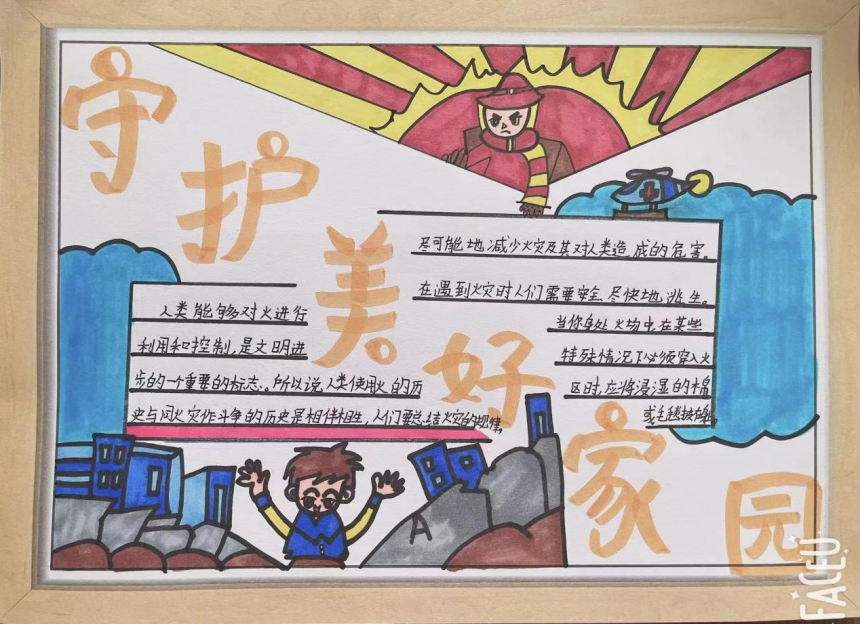 守护美好家园
人类能够对火进行
利用和控制,是文明进
步的一个重要的标志。所以说人类使用火的历
史与同火灾作斗争的历史是相伴相生,人们要总结火灾的规律,
尽可能地减少火灾及其对人类造成的危害。
在遇到火灾时人们需要安全、尽快地逃生。
当你身处火场中,在某些
特殊情况下必须穿入火
区时,应将浸湿的棉
或毛毯披
A
FACEU